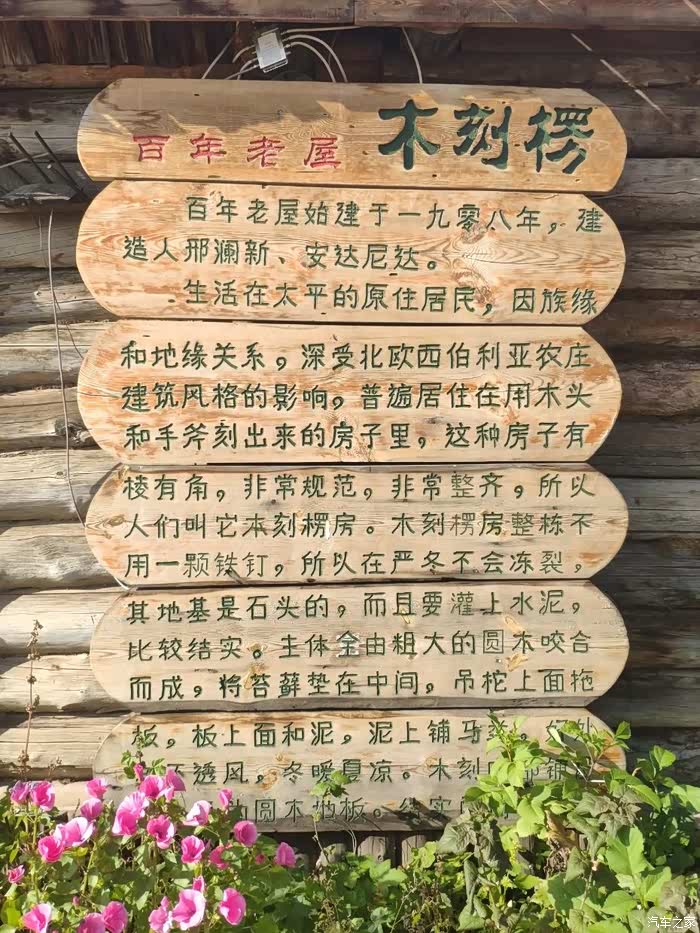 百年老屋 木刻楞
百年老屋始建于一九零八年，建
造人邢澜新、安达尼达。
生活在太平的原住居民，因族缘
和地缘关系，深受北欧西伯利亚农庄
建筑风格的影响，普遍居住在用木头
和手斧刻出来的房子里，这种房子有
棱有角，非常规范，非常整齐，所以
人们叫它本刻楞房。木刻楞房整栋不
用一颗铁钉，所以在严冬不会冻裂，
其地基是石头的，而且要灌上水泥，
比较结实。主体全由粗大的圆木咬合
而成，将苔藓垫在中间，吊柁上面拖
板，板上面和泥，泥上铺马
不透风，冬暖夏凉。木刻
圆木地板。结实
汽车之家